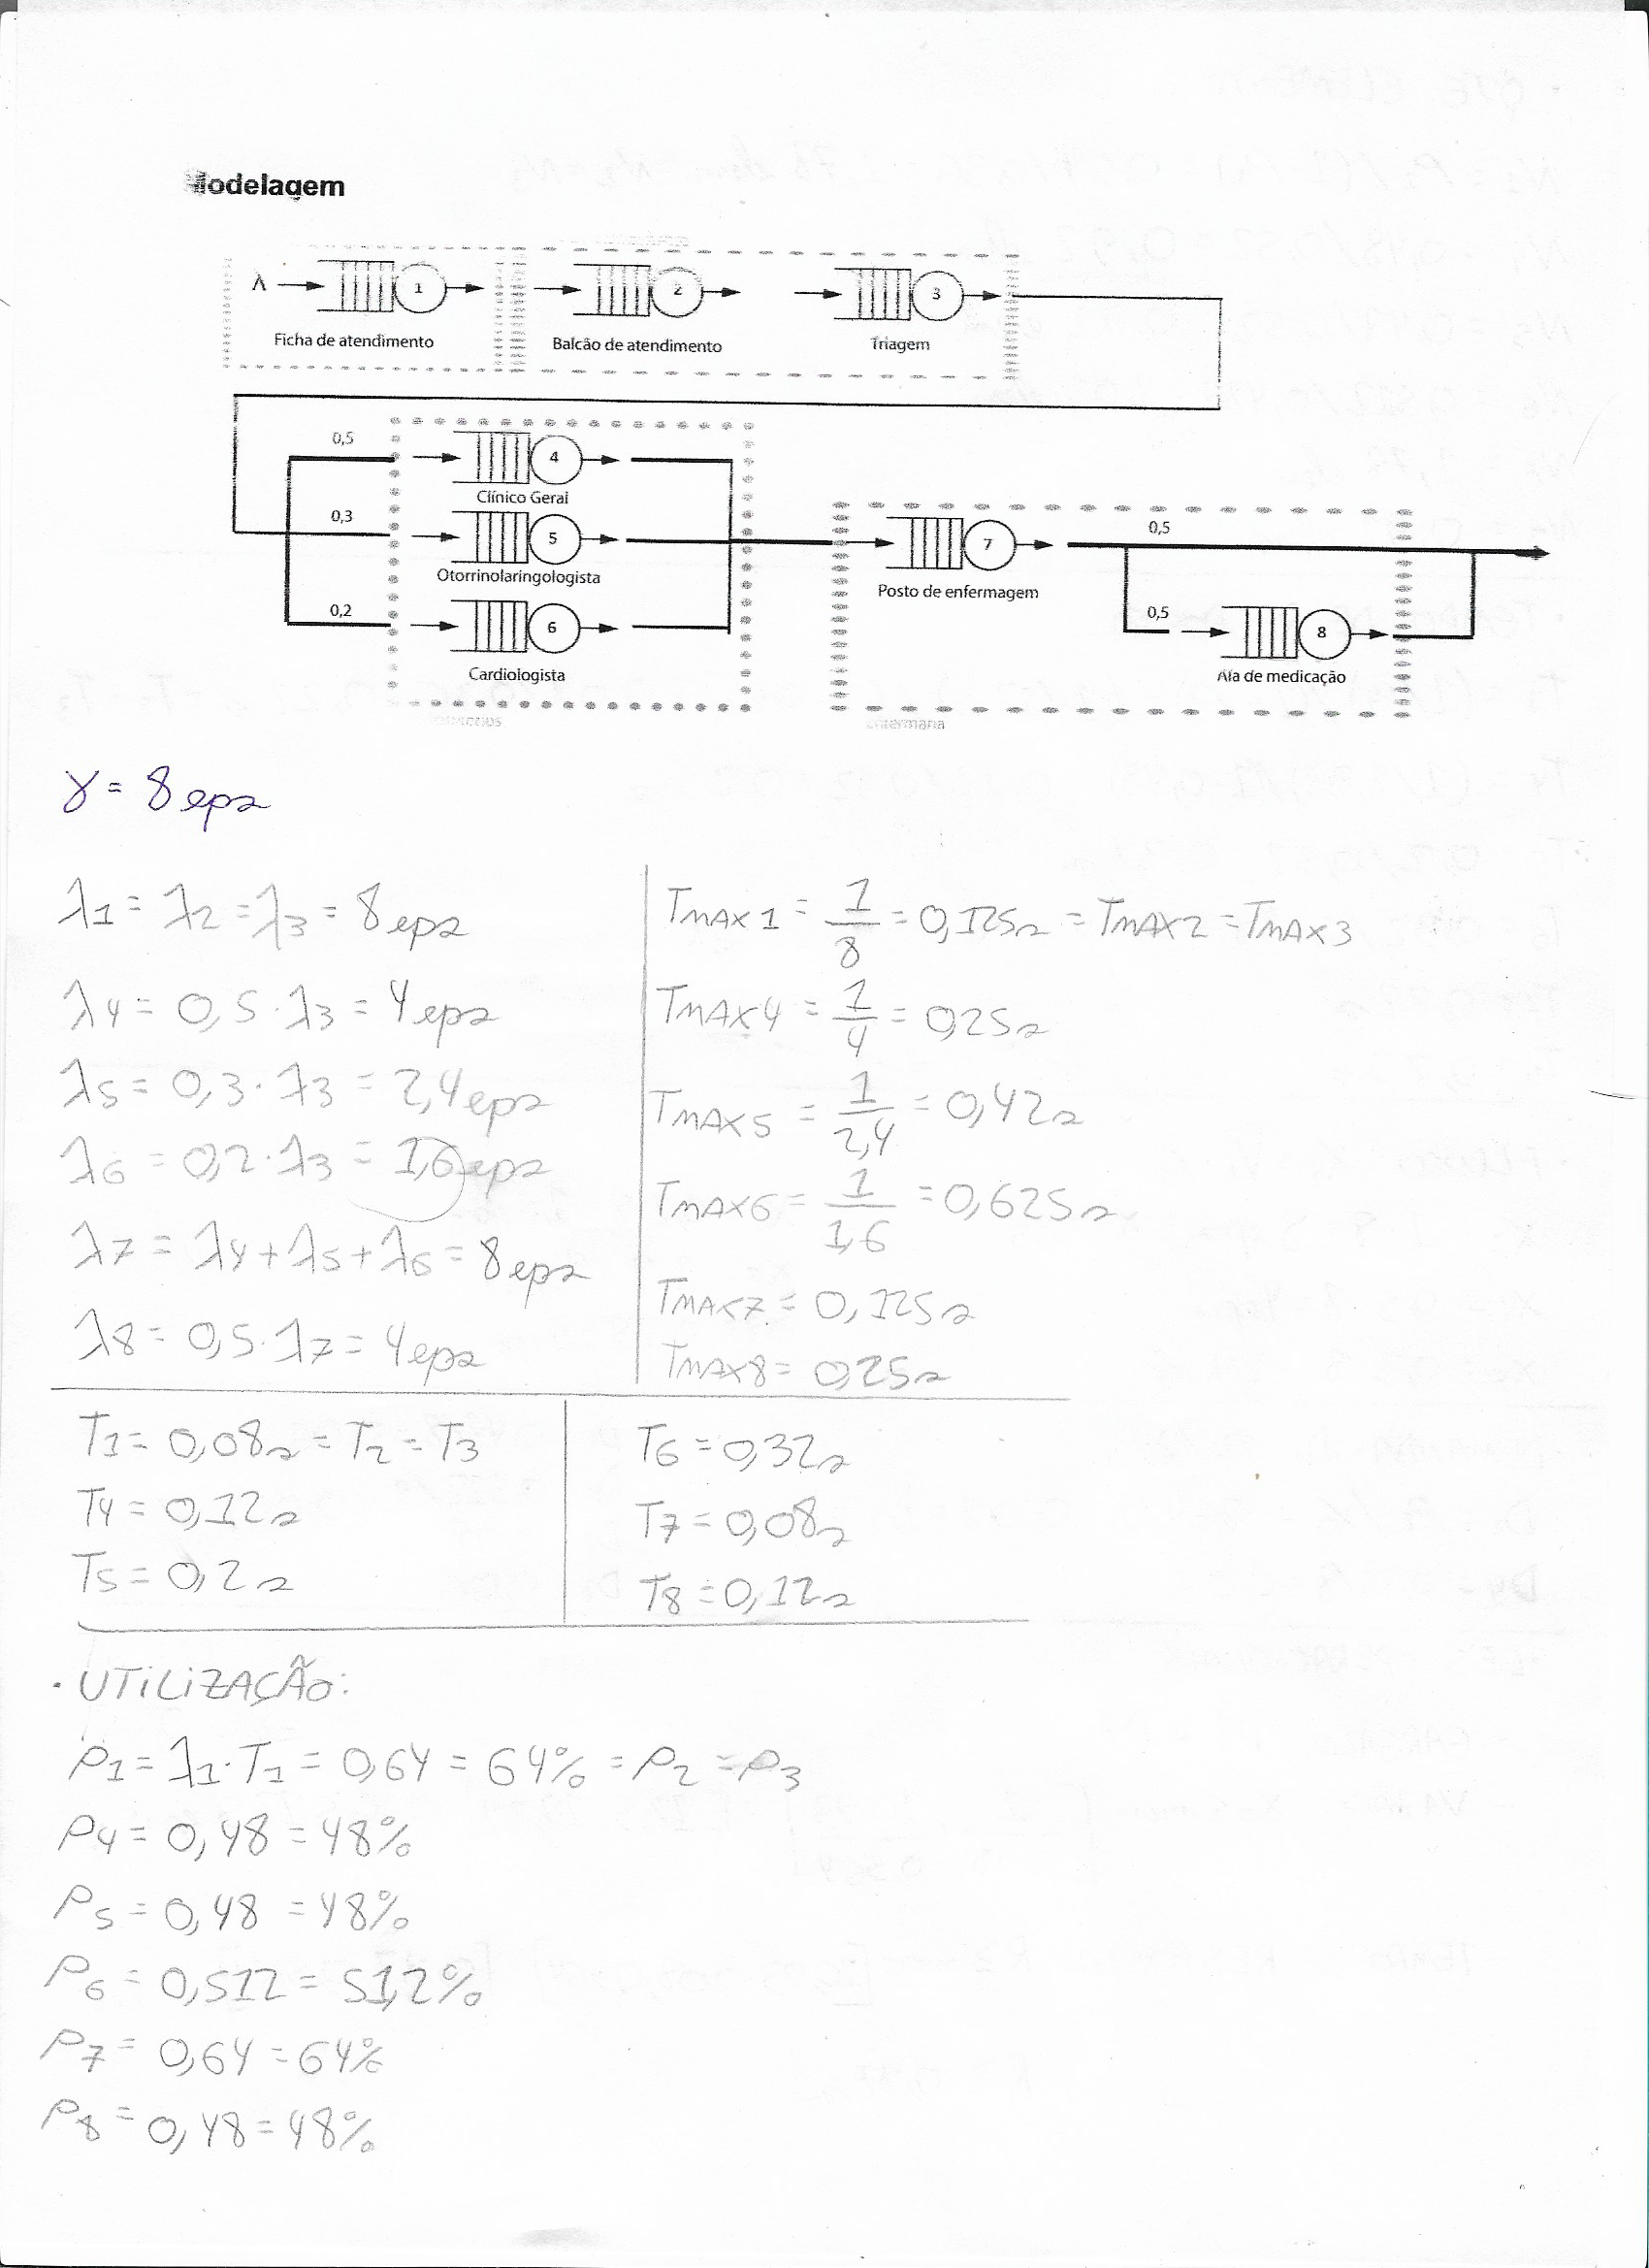 Modelagem
λ 1 2 3
Ficha de atendimento Balcão de atendimento Triagem
0,5 4
Clínico Geral
0,3 5 7 0,5
Otorrinolaringologista Posto de enfermagem
0,2 6 0,5 8
Cardiologista Ala de medicação
γ = 8 eps
λ1 = λ2 = λ3 = 8 eps
λ4 = 0,5 · λ3 = 4 eps
λ5 = 0,3 · λ3 = 2,4 eps
λ6 = 0,2 · λ3 = 1,6 eps
λ7 = λ4 + λ5 + λ6 = 8 eps
λ8 = 0,5 · λ7 = 4 eps
TMAX1 = 1/8 = 0,125s = TMAX2 = TMAX3
TMAX4 = 1/4 = 0,25s
TMAX5 = 1/2,4 = 0,42s
TMAX6 = 1/1,6 = 0,625s
TMAX7 = 0,125s
TMAX8 = 0,25s
T1 = 0,08s = T2 = T3
T4 = 0,12s
T5 = 0,2s
T6 = 0,32s
T7 = 0,08s
T8 = 0,12s
· UTILIZAÇÃO:
ρ1 = λ1 · T1 = 0,64 = 64% = ρ2 = ρ3
ρ4 = 0,48 = 48%
ρ5 = 0,48 = 48%
ρ6 = 0,512 = 51,2%
ρ7 = 0,64 = 64%
ρ8 = 0,48 = 48%